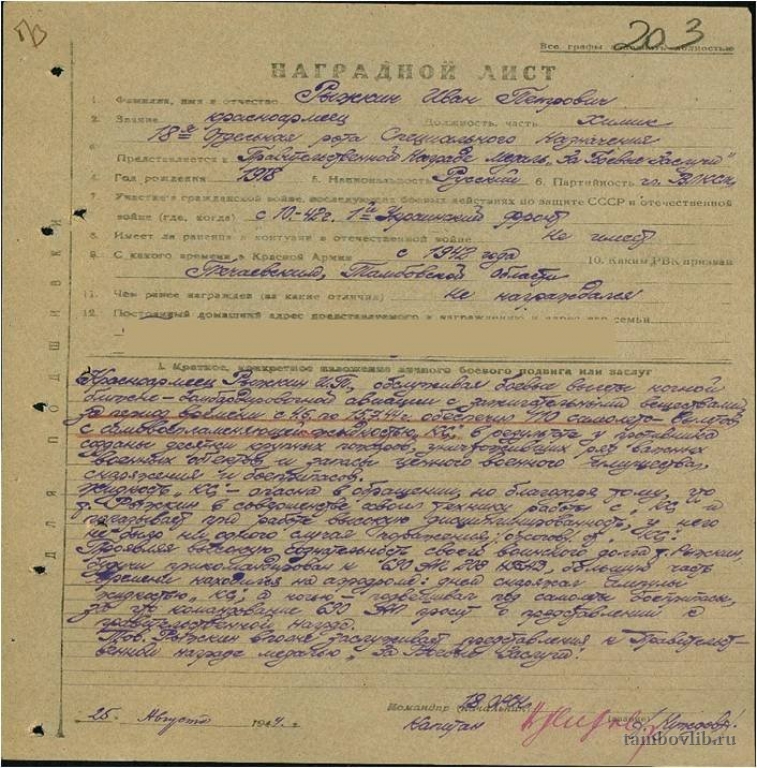 203
Все графы заполнять полностью
НАГРАДНОЙ ЛИСТ
1. Фамилия, имя и отчество Рыжкин Иван Петрович
2. Звание красноармеец Должность, часть химик
18я Отдельная рота Специального Назначения
Представляется к Правительственной Награде медаль „За Боевые Заслуги"
4. Год рождения 1918 5. Национальность Русский 6. Партийность чл. ВЛКСМ
7. Участие в гражданской войне, последующих боевых действиях по защите СССР и отечественной
войне (где, когда) с 10.-42г. 1й Украинский фронт
8. Имеет ли ранения и контузии в отечественной войне Не имеет
9. С какого времени в Красной Армии с 1942 года 10. Каким РВК призван
Токаевским, Тамбовской области
11. Чем ранее награжден (за какие отличия) Не награждался
12. Постоянный домашний адрес представляемого к награждению и адрес его семьи
I. Краткое, конкретное изложение личного боевого подвига или заслуг
Красноармеец Рыжкин И.П., обслуживая боевые вылеты ночной
ближне-бомбардировочной авиации с зажигательными веществами,
за период времени с 4.6. по 15.7.44г. обеспечил 410 самолето-вылетов
с самовоспламеняющей жидкостью „КС", в результате у противника
созданы десятки крупных пожаров, уничтоживших ряд важных
военных объектов и запасы ценного военного имущества,
снаряжения и боеприпасов.
Жидкость „КС" - опасна в обращении, но благодаря тому, что
т. Рыжкин в совершенстве освоил технику работы с „КС" и
показывает при работе высокую дисциплинированность, у него
не было ни одного случая поражения, ожогов от „КС".
Проявляя высокую сознательность своего воинского долга т. Рыжкин,
будучи прикомандирован к 690 АП 208 НБАД, большую часть
времени находился на аэродроме: днем снаряжал ампулы
жидкостью „КС", а ночью - подвешивал под самолеты боеприпасы,
за что командование 690 АП просит о представлении к
правительственной награде.
Тов. Рыжкин вполне заслуживает представления к Правительст-
венной награде медалью „За Боевые Заслуги".
Командир (начальник) 18 ОРСН
25 Августа 1944 г. Капитан
ДЛЯ ПОДШИВКИ
tambovlib.ru